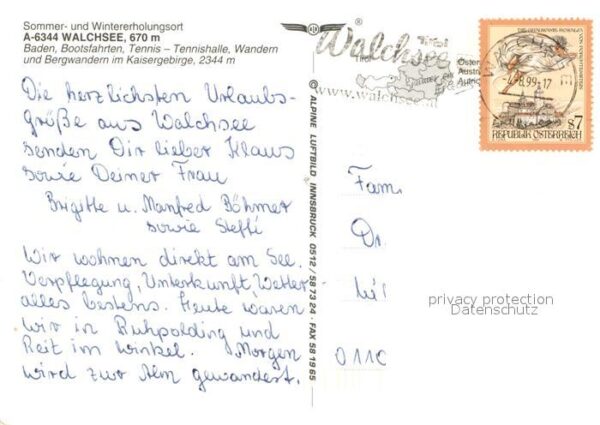 Sommer- und Wintererholungsort
A-6344 WALCHSEE, 670 m
Baden, Bootsfahrten, Tennis – Tennishalle, Wandern
und Bergwandern im Kaisergebirge, 2344 m
Die herzlichsten Urlaubs-
grüße aus Walchsee
senden Dir lieber Klaus
sowie Deiner Frau
Brigitte u. Manfred Böhmer
sowie Steffi
Wir wohnen direkt am See.
Verpflegung, Unterkunft, Wetter
alles bestens. Heute waren
wir in Ruhpolding und
Reit im Winkel. Morgen
wird zur Alm gewandert.
© ALPINE LUFTBILD INNSBRUCK 0512 / 58 73 24 · FAX 58 19 65
Walchsee
Tirol
www.walchsee.at
8.99-17
s7
REPUBLIK ÖSTERREICH
Fam.
Dr.
011
privacy protection
Datenschutz